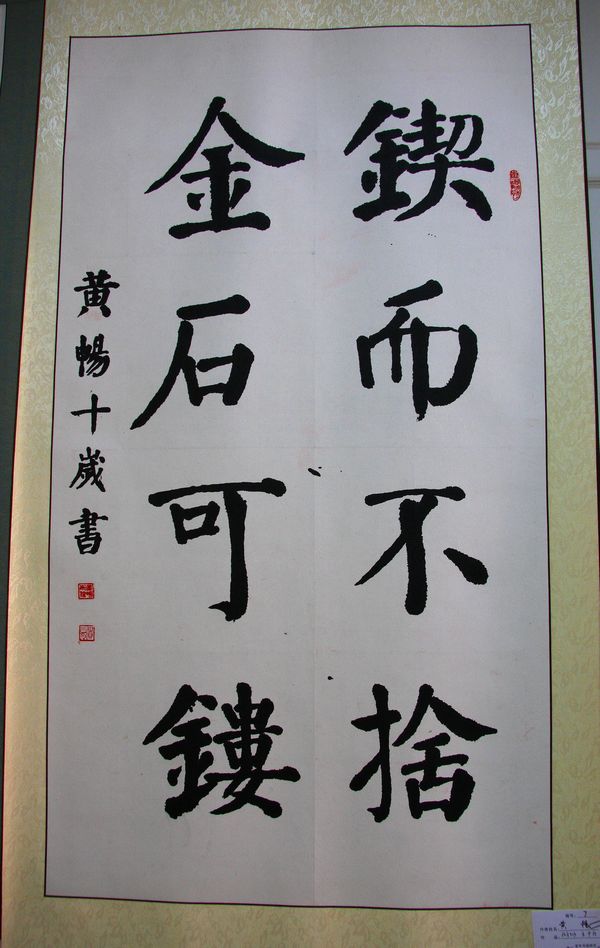 鍥而不捨
金石可鏤
黃暢十歲書